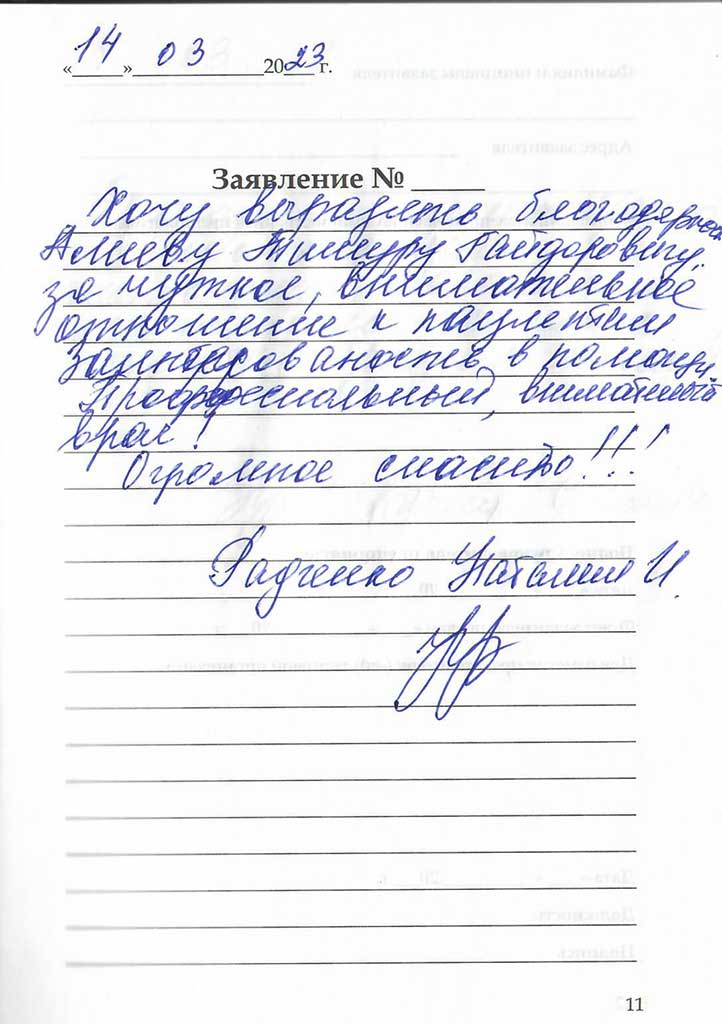 «14» 03 2023 г.
Заявление № ____
Хочу выразить благодарность
Алиеву Тимуру
за чуткое, внимательное
отношение к пациентам
заинтересованность в помощи,
Профессиональный, внимательный
врач!
Огромное спасибо!!!
Радченко Наталия И.
11